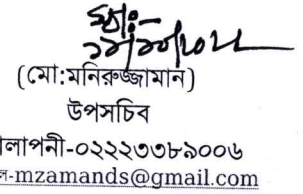 স্বাঃ-
(মো:মনিরুজ্জামান)
উপসচিব
লাপনী-০২২২৩৩৮৯০০৬
ল-mzamands@gmail.com